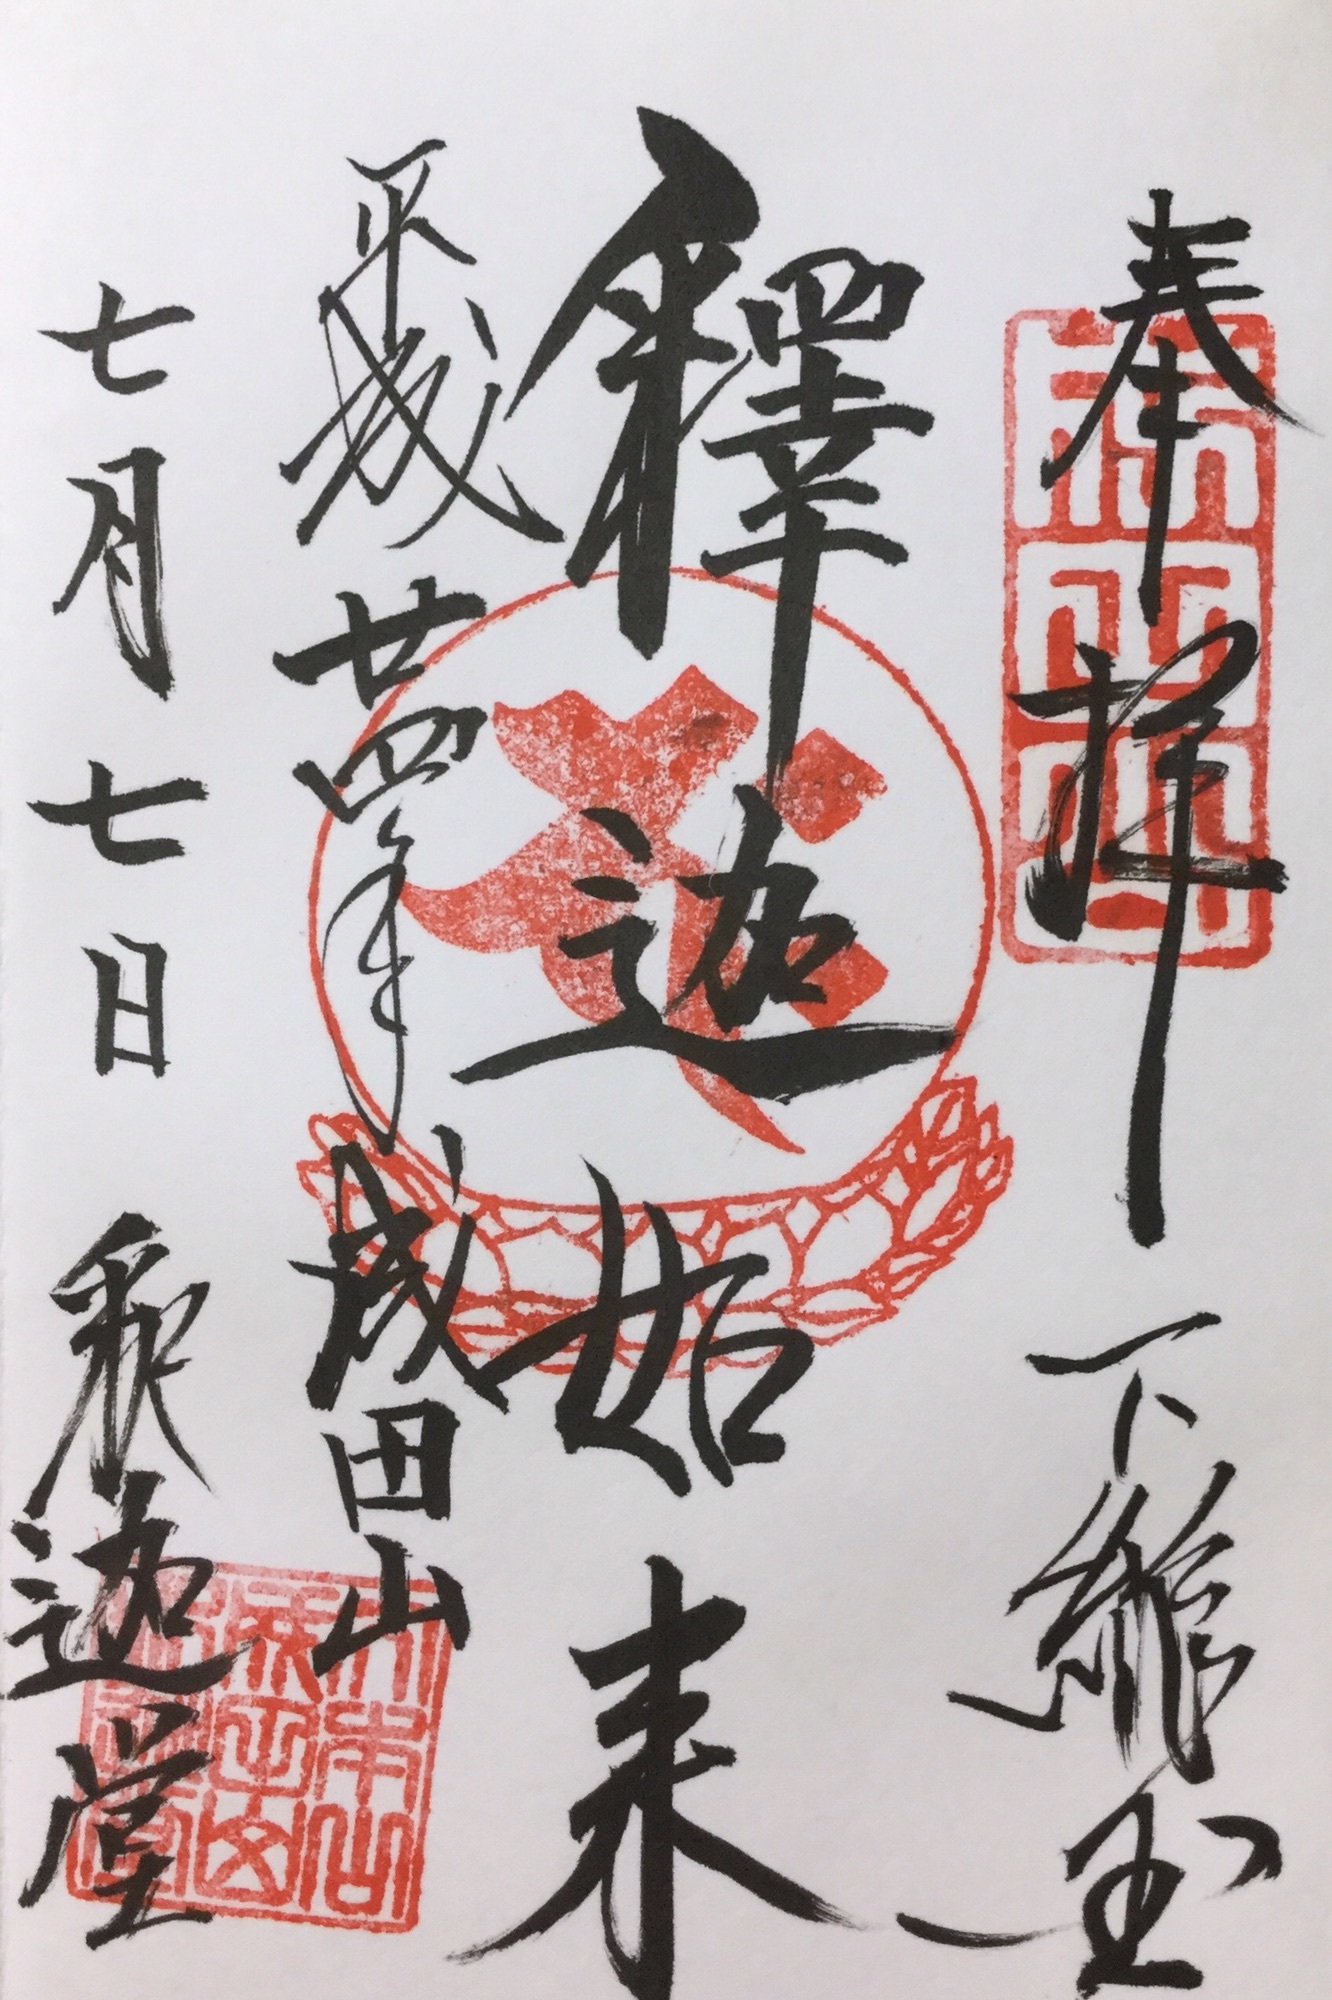 奉拝 下総国
釋迦如来
平成廿四年 成田山
七月七日 釈迦堂